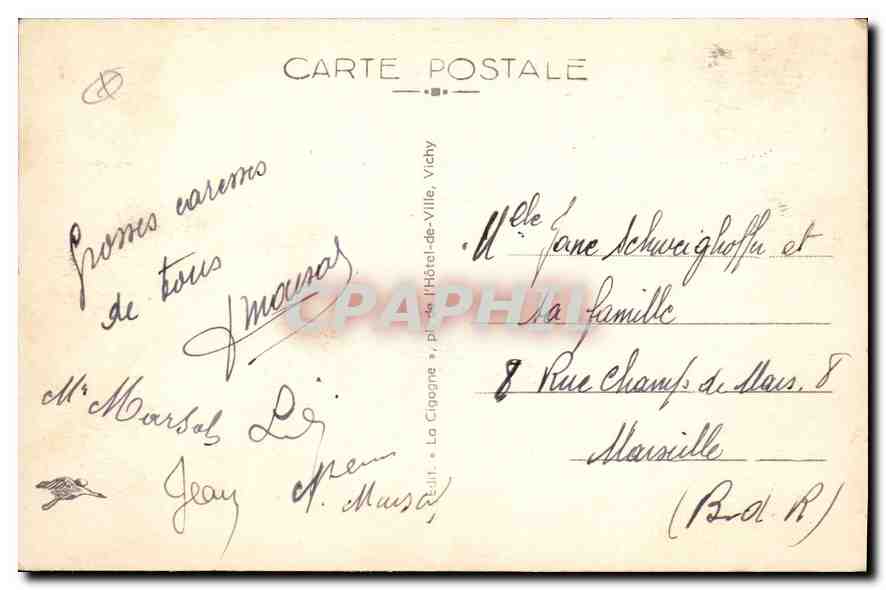 CARTE POSTALE
Grosses caresses
de tous
Marsal
Mr Marsal
Jean
Marsal
Edit. « La Cigogne », pl. de l'Hôtel-de-Ville, Vichy
CPAPHIL
Melle Jane Schweighoffer et
sa famille
8 Rue Champs de Mars. 8
Marseille
(B.d.R)